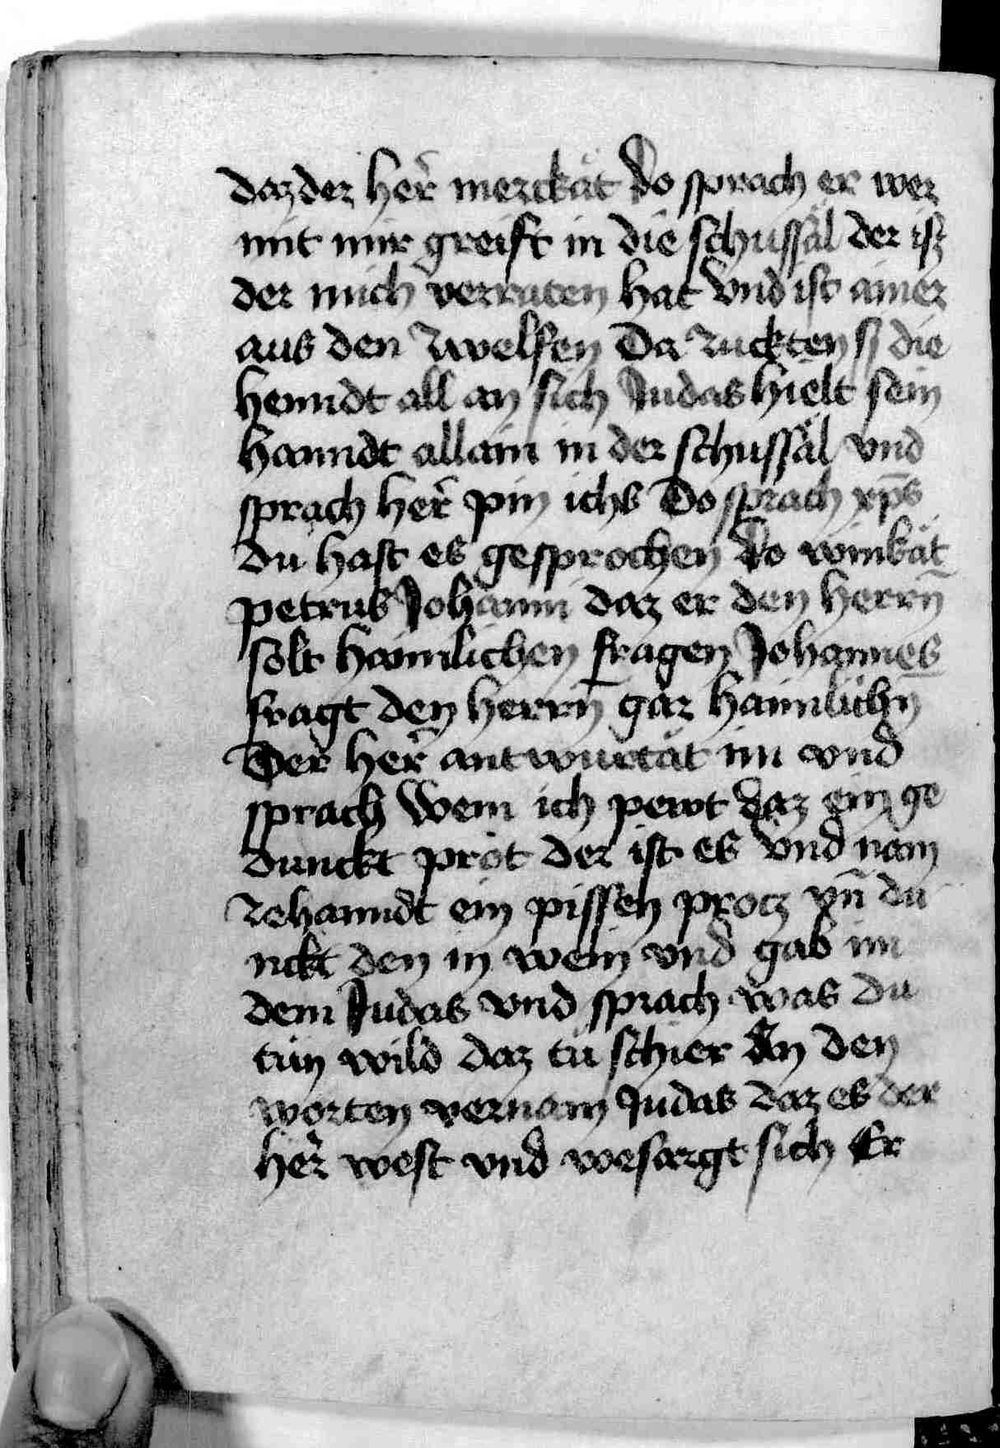 daz der her̄ merckät do sprach er wer
mit mir greift in die schussäl der ist
der mich verraten hat vnd ist ainer
aus den zwelfen Da ruckten sy die
henndt all an sich Judas hielt sein
hanndt allain in der schussäl vnd
sprach her̄ pin ichs Do sprach xp̄s
du hast es gesprochen do winkät
petrus Johanni daz er den herrn̄
solt haimlichen fragen Johannes
fragt den herrn̄ gar haimlichn̄
Der her̄ antwurtät im vnd
sprach Wem ich pewt daz ein ge
dunckt prot der ist es vnd nam
zehanndt ein pissen protz vn̄ du
nckt den in wein vnd gab im
dem Judas vnd sprach was du
tun wild daz tu schier An den
worten vernam Judas daz es der
her̄ west vnd wesargt sich Er